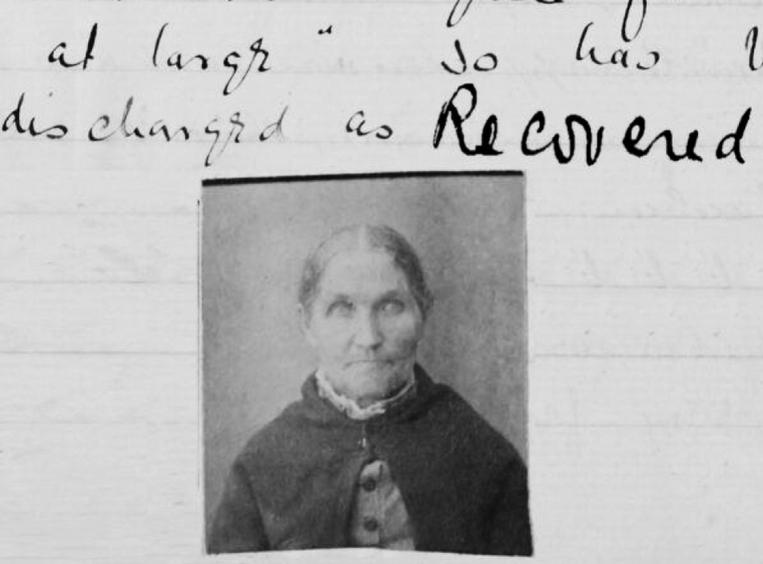 at large" so has
discharged as Recovered